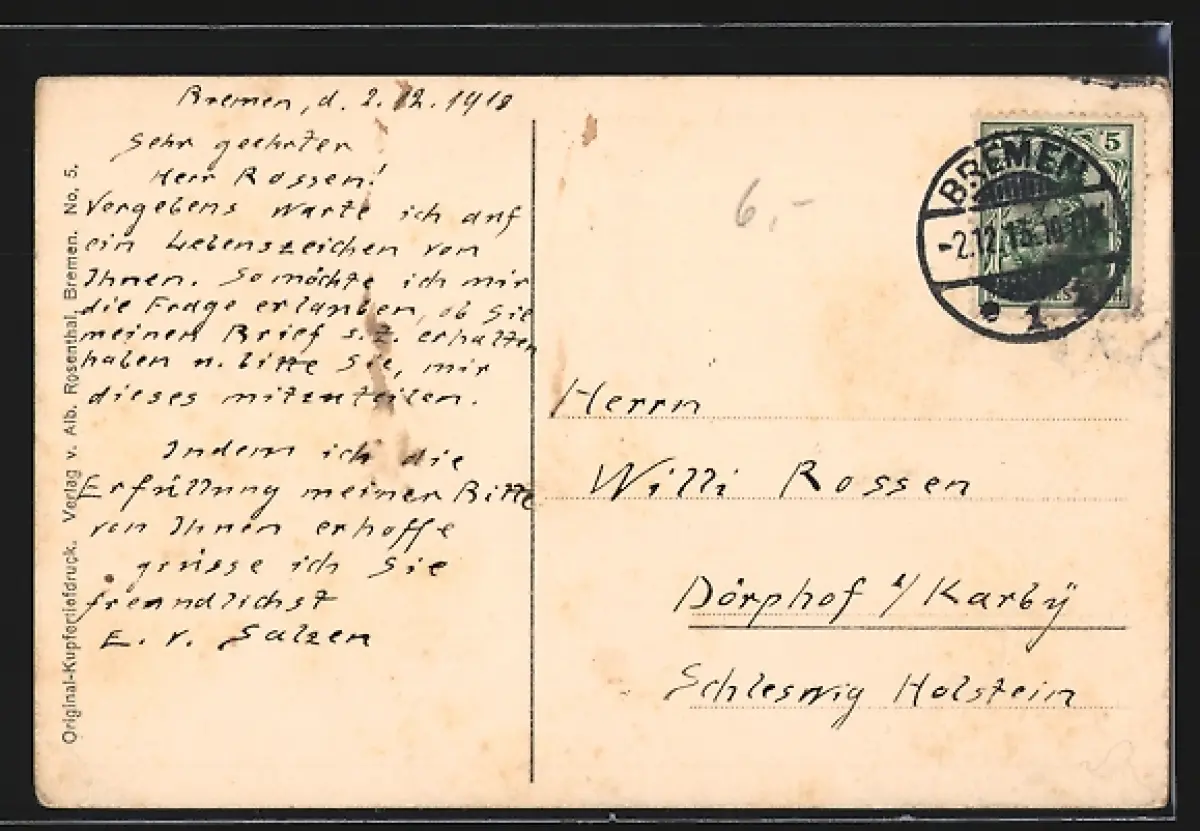 Bremen, d. 2. 12. 1910
Sehr geehrter
Herr Rossen!
Vergebens warte ich auf
ein Lebenszeichen von
Ihnen. So möchte ich mir
die Frage erlauben, ob Sie
meinen Brief s. Z. erhalten
haben u. bitte Sie, mir
dieses mitzuteilen.
Indem ich die
Erfüllung meiner Bitte
von Ihnen erhoffe
grüsse ich Sie
freundlichst
E. v. Salzen
Original-Kupfertiefdruck. Verlag v. Alb. Rosenthal, Bremen. No. 5.
6,-
5
BREMEN
-2.12.
1
Herrn
Willi Rossen
Dörphof /Karbÿ
Schleswig Holstein